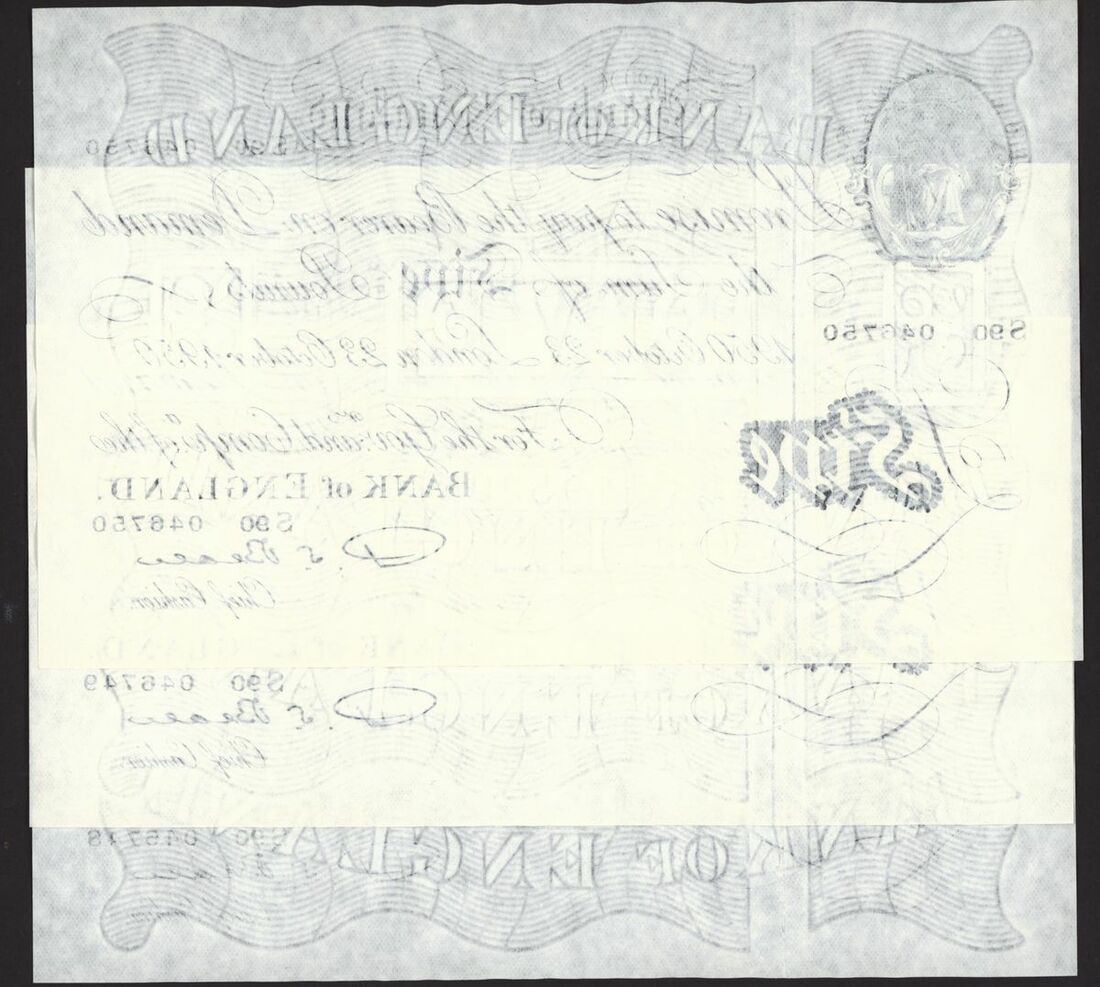 BANK OF ENGLAND
S90 046750
Promise to pay the Bearer on Demand
the Sum of Five Pounds
S90 046750
1950 October 23 London 23 October 1950
For the Gov.r and Comp.a of the
Five
BANK of ENGLAND.
S90 046750
P. S. Beale
Chief Cashier.
BANK of ENGLAND.
S90 046749
P. S. Beale
Chief Cashier.
S90 046748
BANK OF ENGLAND